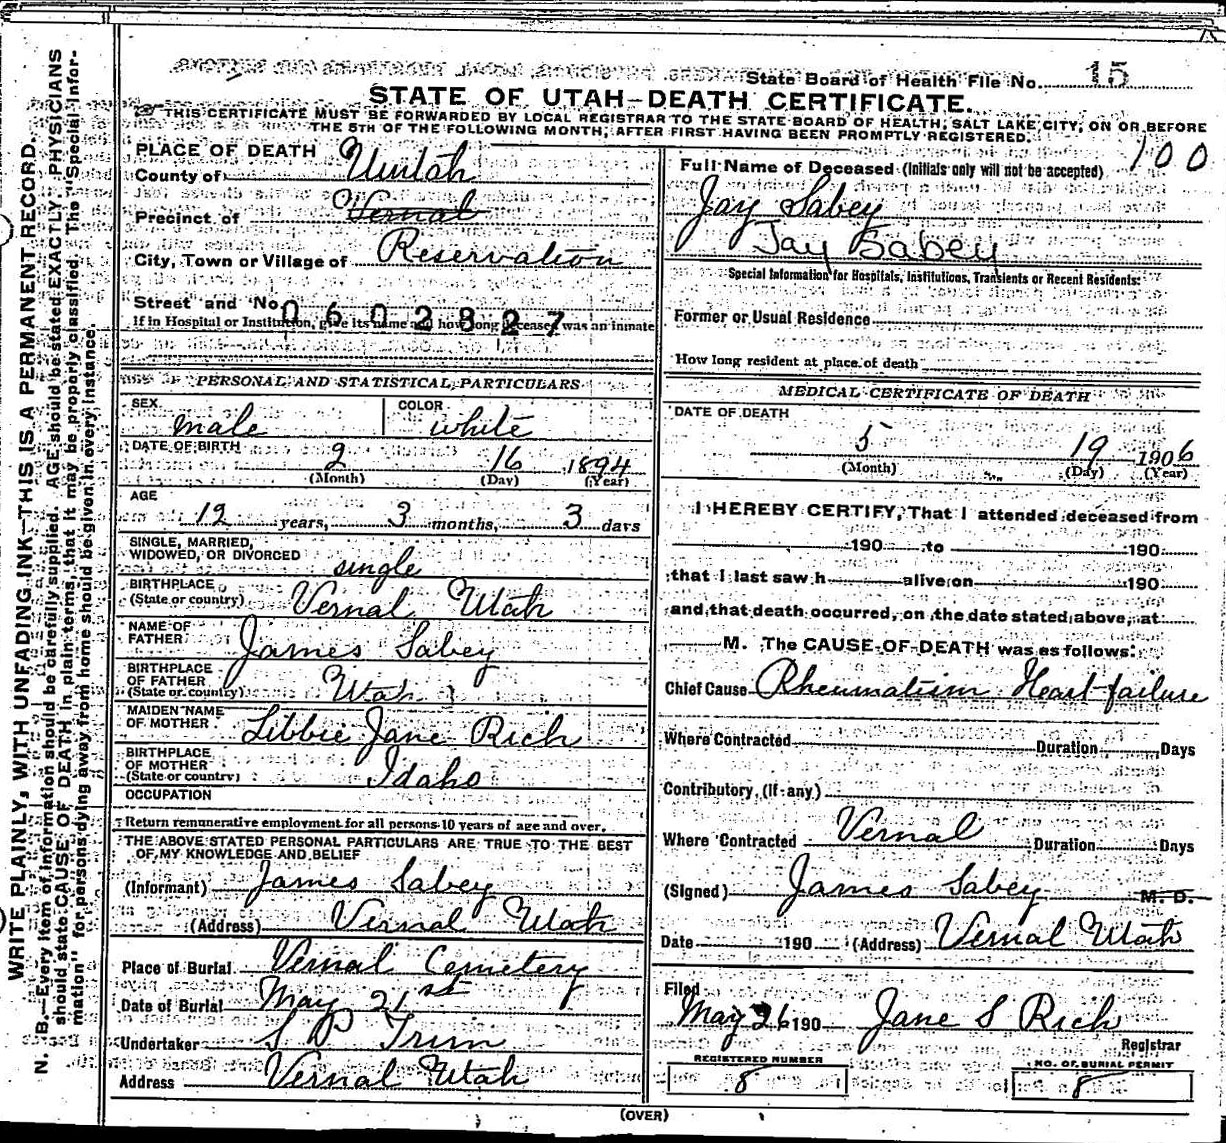 State Board of Health File No. 15
STATE OF UTAH—DEATH CERTIFICATE.
THIS CERTIFICATE MUST BE FORWARDED BY LOCAL REGISTRAR TO THE STATE BOARD OF HEALTH, SALT LAKE CITY, ON OR BEFORE
THE 5TH OF THE FOLLOWING MONTH, AFTER FIRST HAVING BEEN PROMPTLY REGISTERED.
WRITE PLAINLY, WITH UNFADING INK—THIS IS A PERMANENT RECORD.
N. B.—Every item of information should be carefully supplied. AGE should be stated EXACTLY. PHYSICIANS
should state CAUSE OF DEATH in plain terms, that it may be properly classified. The "Special Infor-
mation" for persons dying away from home should be given in every instance.
PLACE OF DEATH
County of Uintah
Precinct of Vernal
City, Town or Village of Reservation
Street and No.
0602827
If in Hospital or Institution, give its name and how long deceased was an inmate
PERSONAL AND STATISTICAL PARTICULARS
SEX male COLOR white
DATE OF BIRTH 2 16 1894
(Month) (Day) (Year)
AGE
12 years, 3 months, 3 days
SINGLE, MARRIED,
WIDOWED, OR DIVORCED single
BIRTHPLACE
(State or country) Vernal Utah
NAME OF
FATHER James Sabey
BIRTHPLACE
OF FATHER
(State or country) Utah
MAIDEN NAME
OF MOTHER Libbie Jane Rich
BIRTHPLACE
OF MOTHER
(State or country) Idaho
OCCUPATION
Return remunerative employment for all persons 10 years of age and over.
THE ABOVE STATED PERSONAL PARTICULARS ARE TRUE TO THE BEST
OF MY KNOWLEDGE AND BELIEF
(Informant) James Sabey
(Address) Vernal Utah
Place of Burial Vernal Cemetery
Date of Burial May 21st
Undertaker S P Trim
Address Vernal Utah
100
Full Name of Deceased (Initials only will not be accepted)
Jay Sabey
Jay Sabey
Special Information for Hospitals, Institutions, Transients or Recent Residents:
Former or Usual Residence
How long resident at place of death
MEDICAL CERTIFICATE OF DEATH
DATE OF DEATH
5 19 1906
(Month) (Day) (Year)
I HEREBY CERTIFY, That I attended deceased from
190 to 190
that I last saw h alive on 190
and that death occurred, on the date stated above, at
M. The CAUSE OF DEATH was as follows:
Chief Cause Rheumatism Heart failure
Where Contracted Duration Days
Contributory, (If any)
Where Contracted Vernal Duration Days
(Signed) James Sabey M. D.
Date 190 (Address) Vernal Utah
Filed
May 26 190 Jane S Rich
Registrar
REGISTERED NUMBER
8
NO. OF BURIAL PERMIT
8
(OVER)